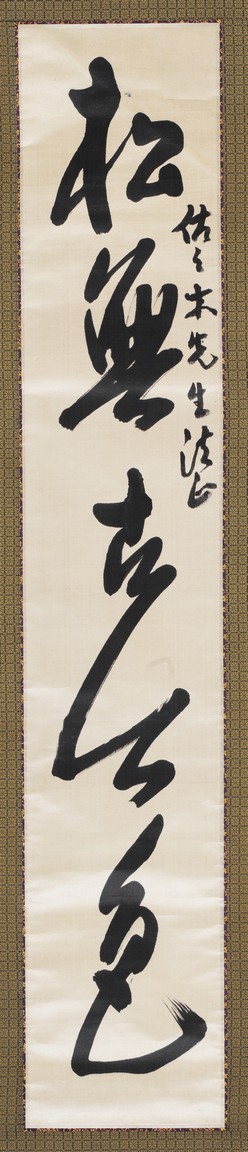 佐々木先生法正
松無古今色